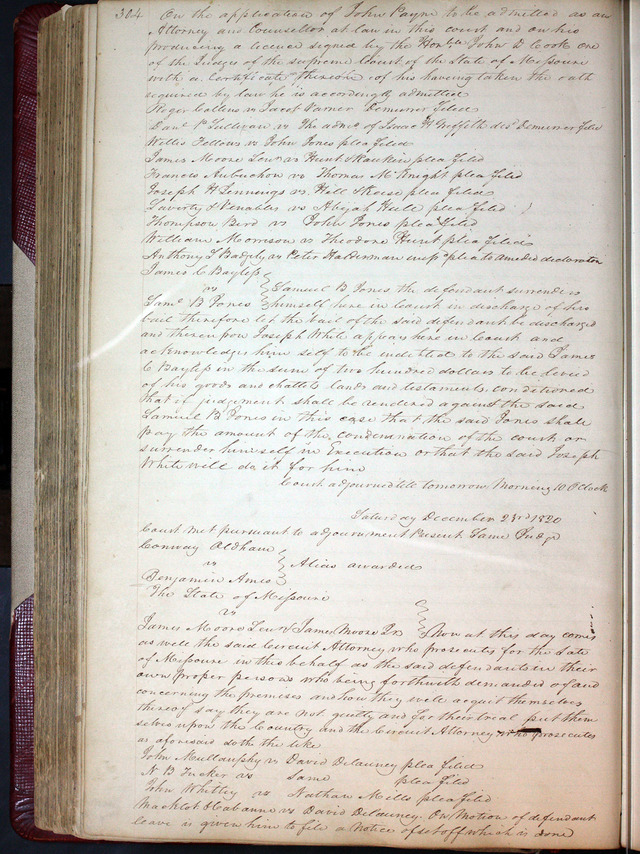 304 On the application of John Payne to be admitted as an
Attorney and Counsellor at law in this court and on his
producing a licence signed by the Honble John D Cook one
of the Judges of the supreme Court of the State of Missouri
with a certificate thereon of his having taken the oath
required by law he is accordingly admitted
Roger Collens vs Jacob Demurrer filed
Danl Sullivan vs The admr of Isaac H Griffith decd Demurrer filed
Willis Fellows vs John Jones plea filed
James Moore Senr vs Hunt & Rankin plea filed
Francis Aubuchon vs Thomas McKnight plea filed
Joseph H Jennings vs Hill & Keese plea filed
Laverty & Venables vs Abijah Hull plea filed
Thompson Bird vs John Jones plea filed
William Morrison vs Theodore Hunt plea filed
Anthony S Badgely vs Peter Halderman plea to amended declaration
James C Bayless
vs Samuel B Jones the defendant surrenders
Saml B Jones himself here in Court in discharge of his
bail therefore let the bail of the said defendant be discharged
and thereupon Joseph White appears here in Court and
acknowledges him self to be indebted to the said James
C Bayless in the sum of two hundred dollars to be levied
of his goods and chattels lands and testaments conditioned
that if judgement shall be rendered against the said
Samuel B Jones in this case that the said Jones shall
pay the amount of the condemnation of the court or
surrender himself in Execution or that the said Joseph
White will do it for him
Court adjourned till tomorrow Morning 10 OClock
Saturday December 23rd 1820
Court met pursuant to adjournment Present Same Judge
Conway Oldham
vs Alias awarded
Benjamin Ames
The State of Missouri
vs
James Moore Senr & James Moore Jr Now at this day comes
as well the said Circuit Attorney who prosecutes for the State
of Missouri in this behalf as the said defendants in their
own proper persons who being forthwith demanded of and
concerning the premises and how they will acquit themselves
thereof say they are not guilty and for their trial put them
selves upon the Country and the Circuit Attorney who prosecutes
as aforesaid doth the like
John Mullanphy vs David Delauney plea filed
N B Tucker vs same plea filed
John Whitley vs Nathan Mills plea filed
Macklot & Cabanne vs David Delauney. On Motion of defendant
leave is given him to file a Notice of set off which is done